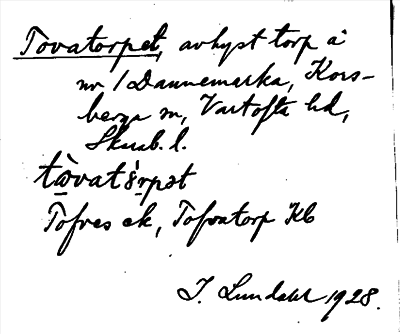 Tovatorpet, avhyst torp å
nr 1 Dannemarka, Kors-
berga sn, Vartofta hd,
Skarab. l.
tòvatórpət
Tofves ek, Tofvatorp Kb
I. Lundahl 1928.